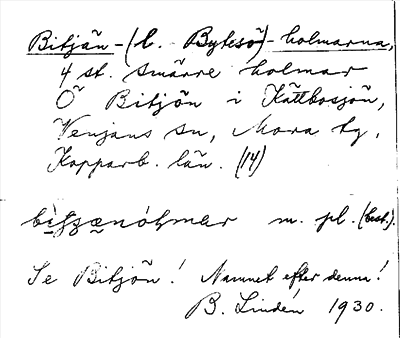 Bitjän-(l. Byltsö)-holmarna,
4 st. smärre holmar
Ö Bitjön i Kättbosjön,
Venjans sn, Mora tg,
Kopparb. län. (14)
m. pl. (best.).
Se Bitjön! Namnet efter denna!
B. Lindén 1930.